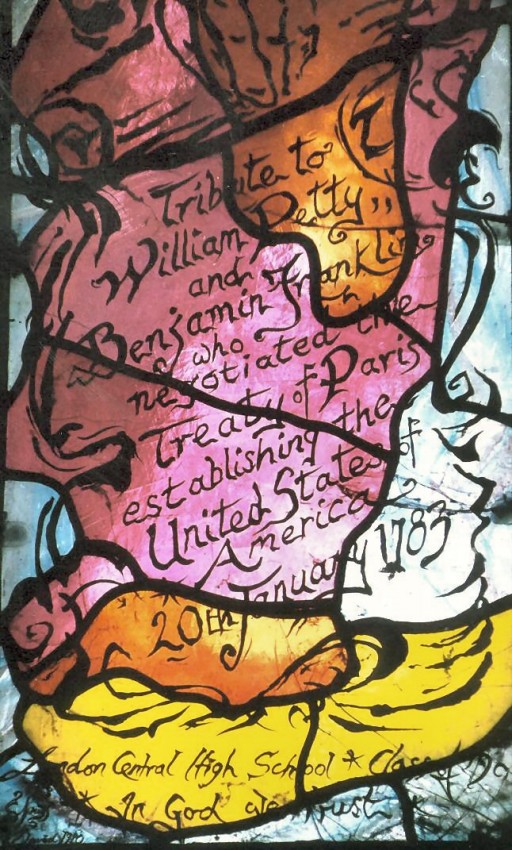 Tribute to
William Petty,,
and
Benjamin Franklin
who
negotiated the
Treaty of Paris
establishing the
United States of
America
20th January 1783
London Central High School * Class of '90
* In God we Trust *